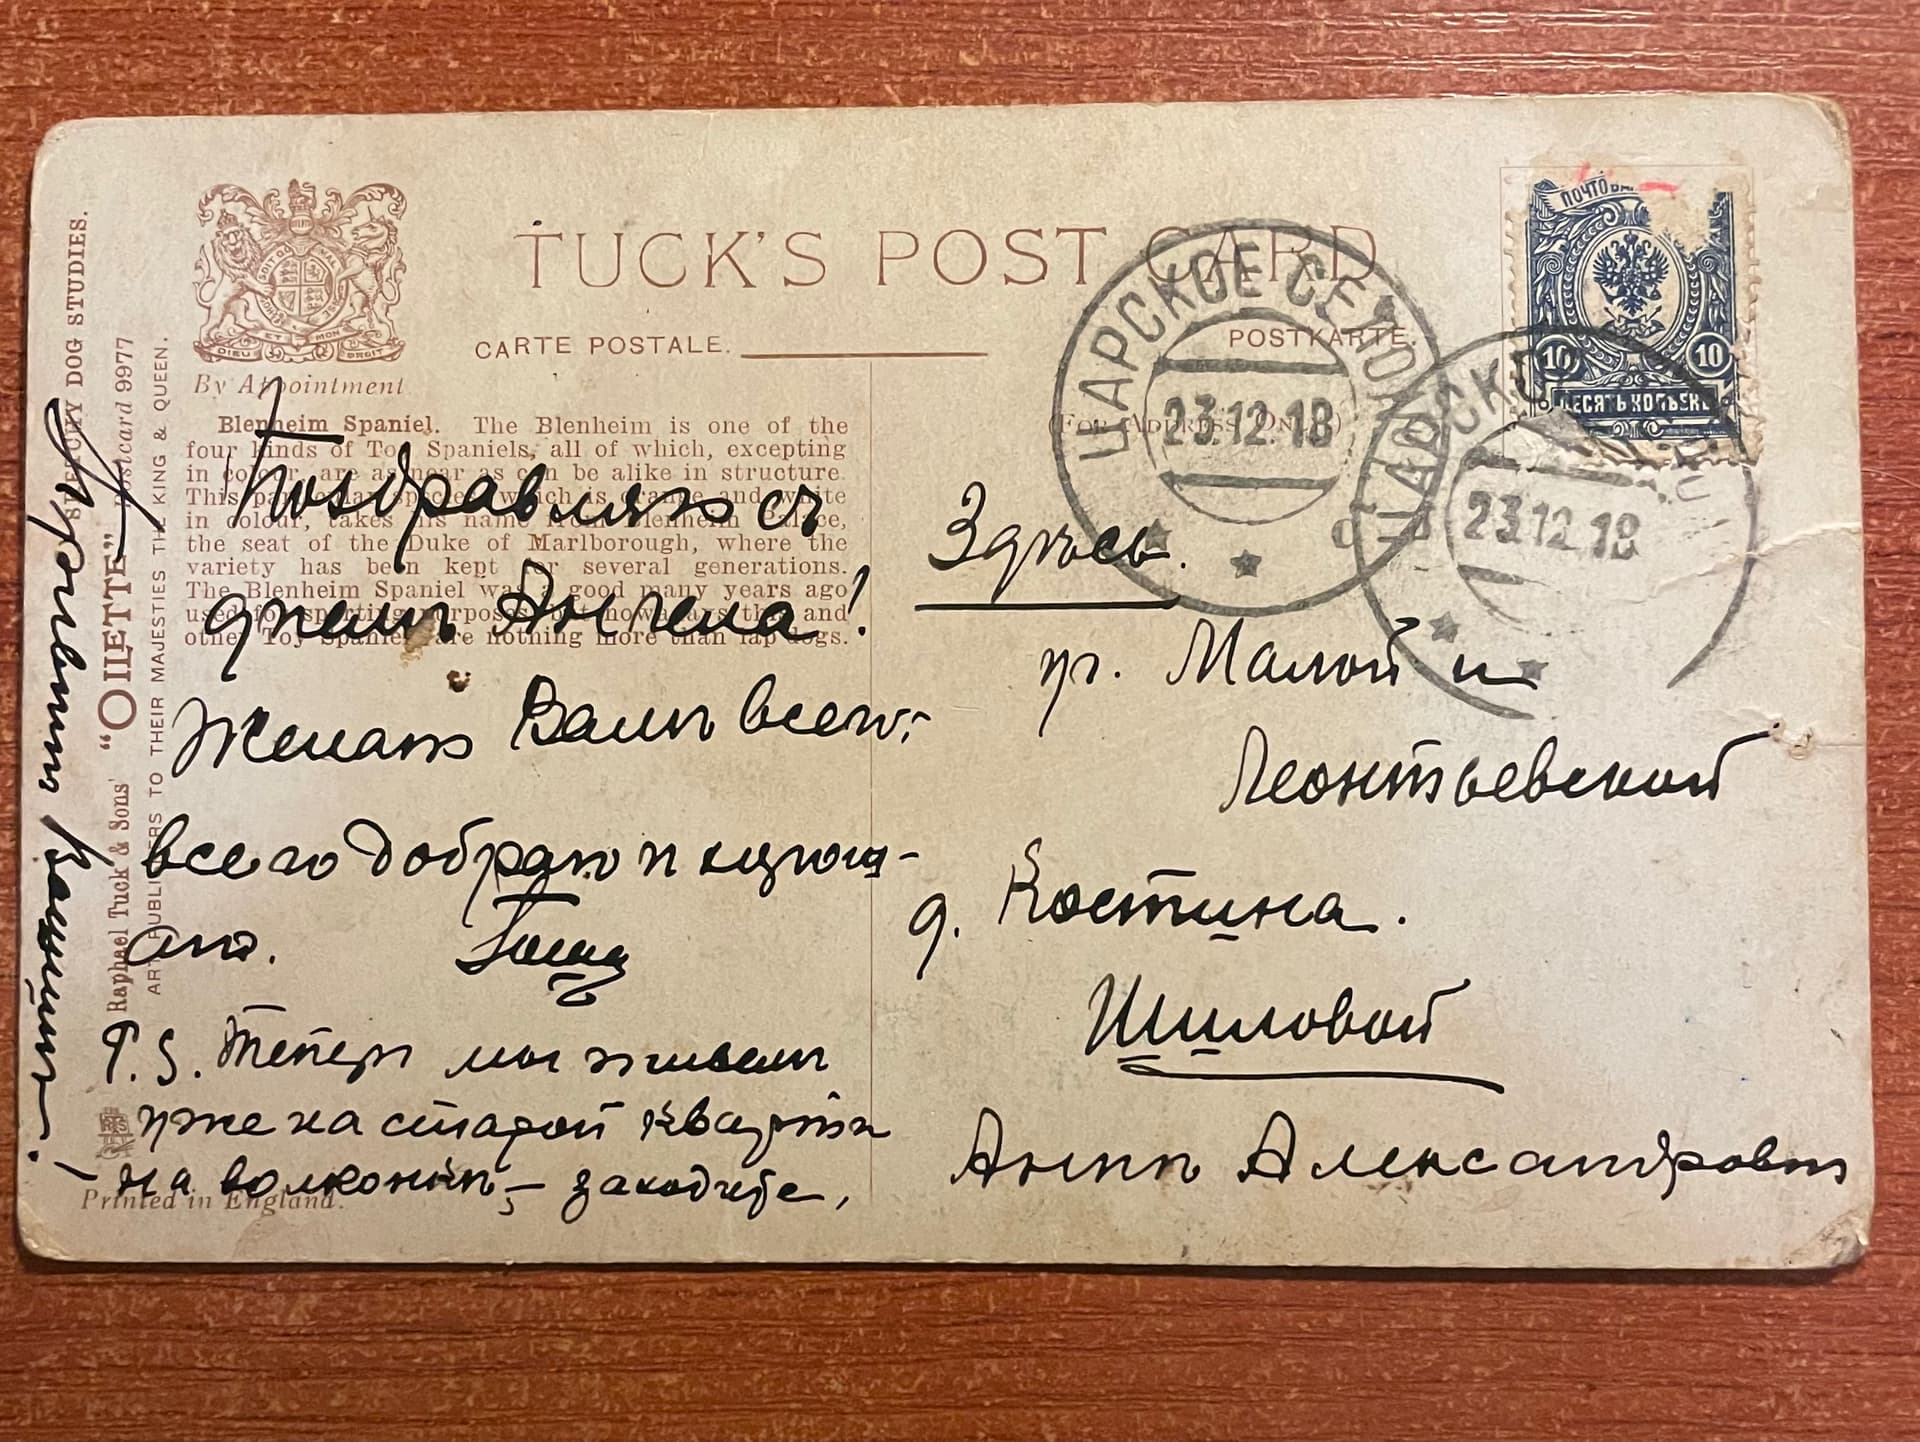 TUCK'S POST CARD
CARTE POSTALE.
POSTKARTE.
(For Address Only)
By Appointment
DIEU ET MON DROIT
Blenheim Spaniel. The Blenheim is one of the
four kinds of Toy Spaniels, all of which, excepting
in colour, are as near as can be alike in structure.
This particular species, which is orange and white
in colour, takes its name from Blenheim Palace,
the seat of the Duke of Marlborough, where the
variety has been kept for several generations.
The Blenheim Spaniel was a good many years ago
used for sporting purposes, but nowadays this and
other Toy Spaniels are nothing more than lap dogs.
Поздравляю съ
днемъ Ангела!
Желаю Вамъ всего-
всего добраго и цѣлую
P. S. Теперь мы живемъ
уже на старой квартирѣ
на – заходите,
вашимъ!
DOG STUDIES.
Raphael Tuck & Sons' "OILETTE" Postcard 9977
ART PUBLISHERS TO THEIR MAJESTIES THE KING & QUEEN.
Printed in England.
ПОЧТОВА
10
10
ДЕСЯТЬ КОПѢЕКЪ
ЦАРСКОЕ СЕЛО
23.12.18
ЦАРСКОЕ
23.12.18
Здѣсь.
уг. Малой и
Леонтьевской
д. Костина.
Шиловой
Аннѣ Александровнѣ